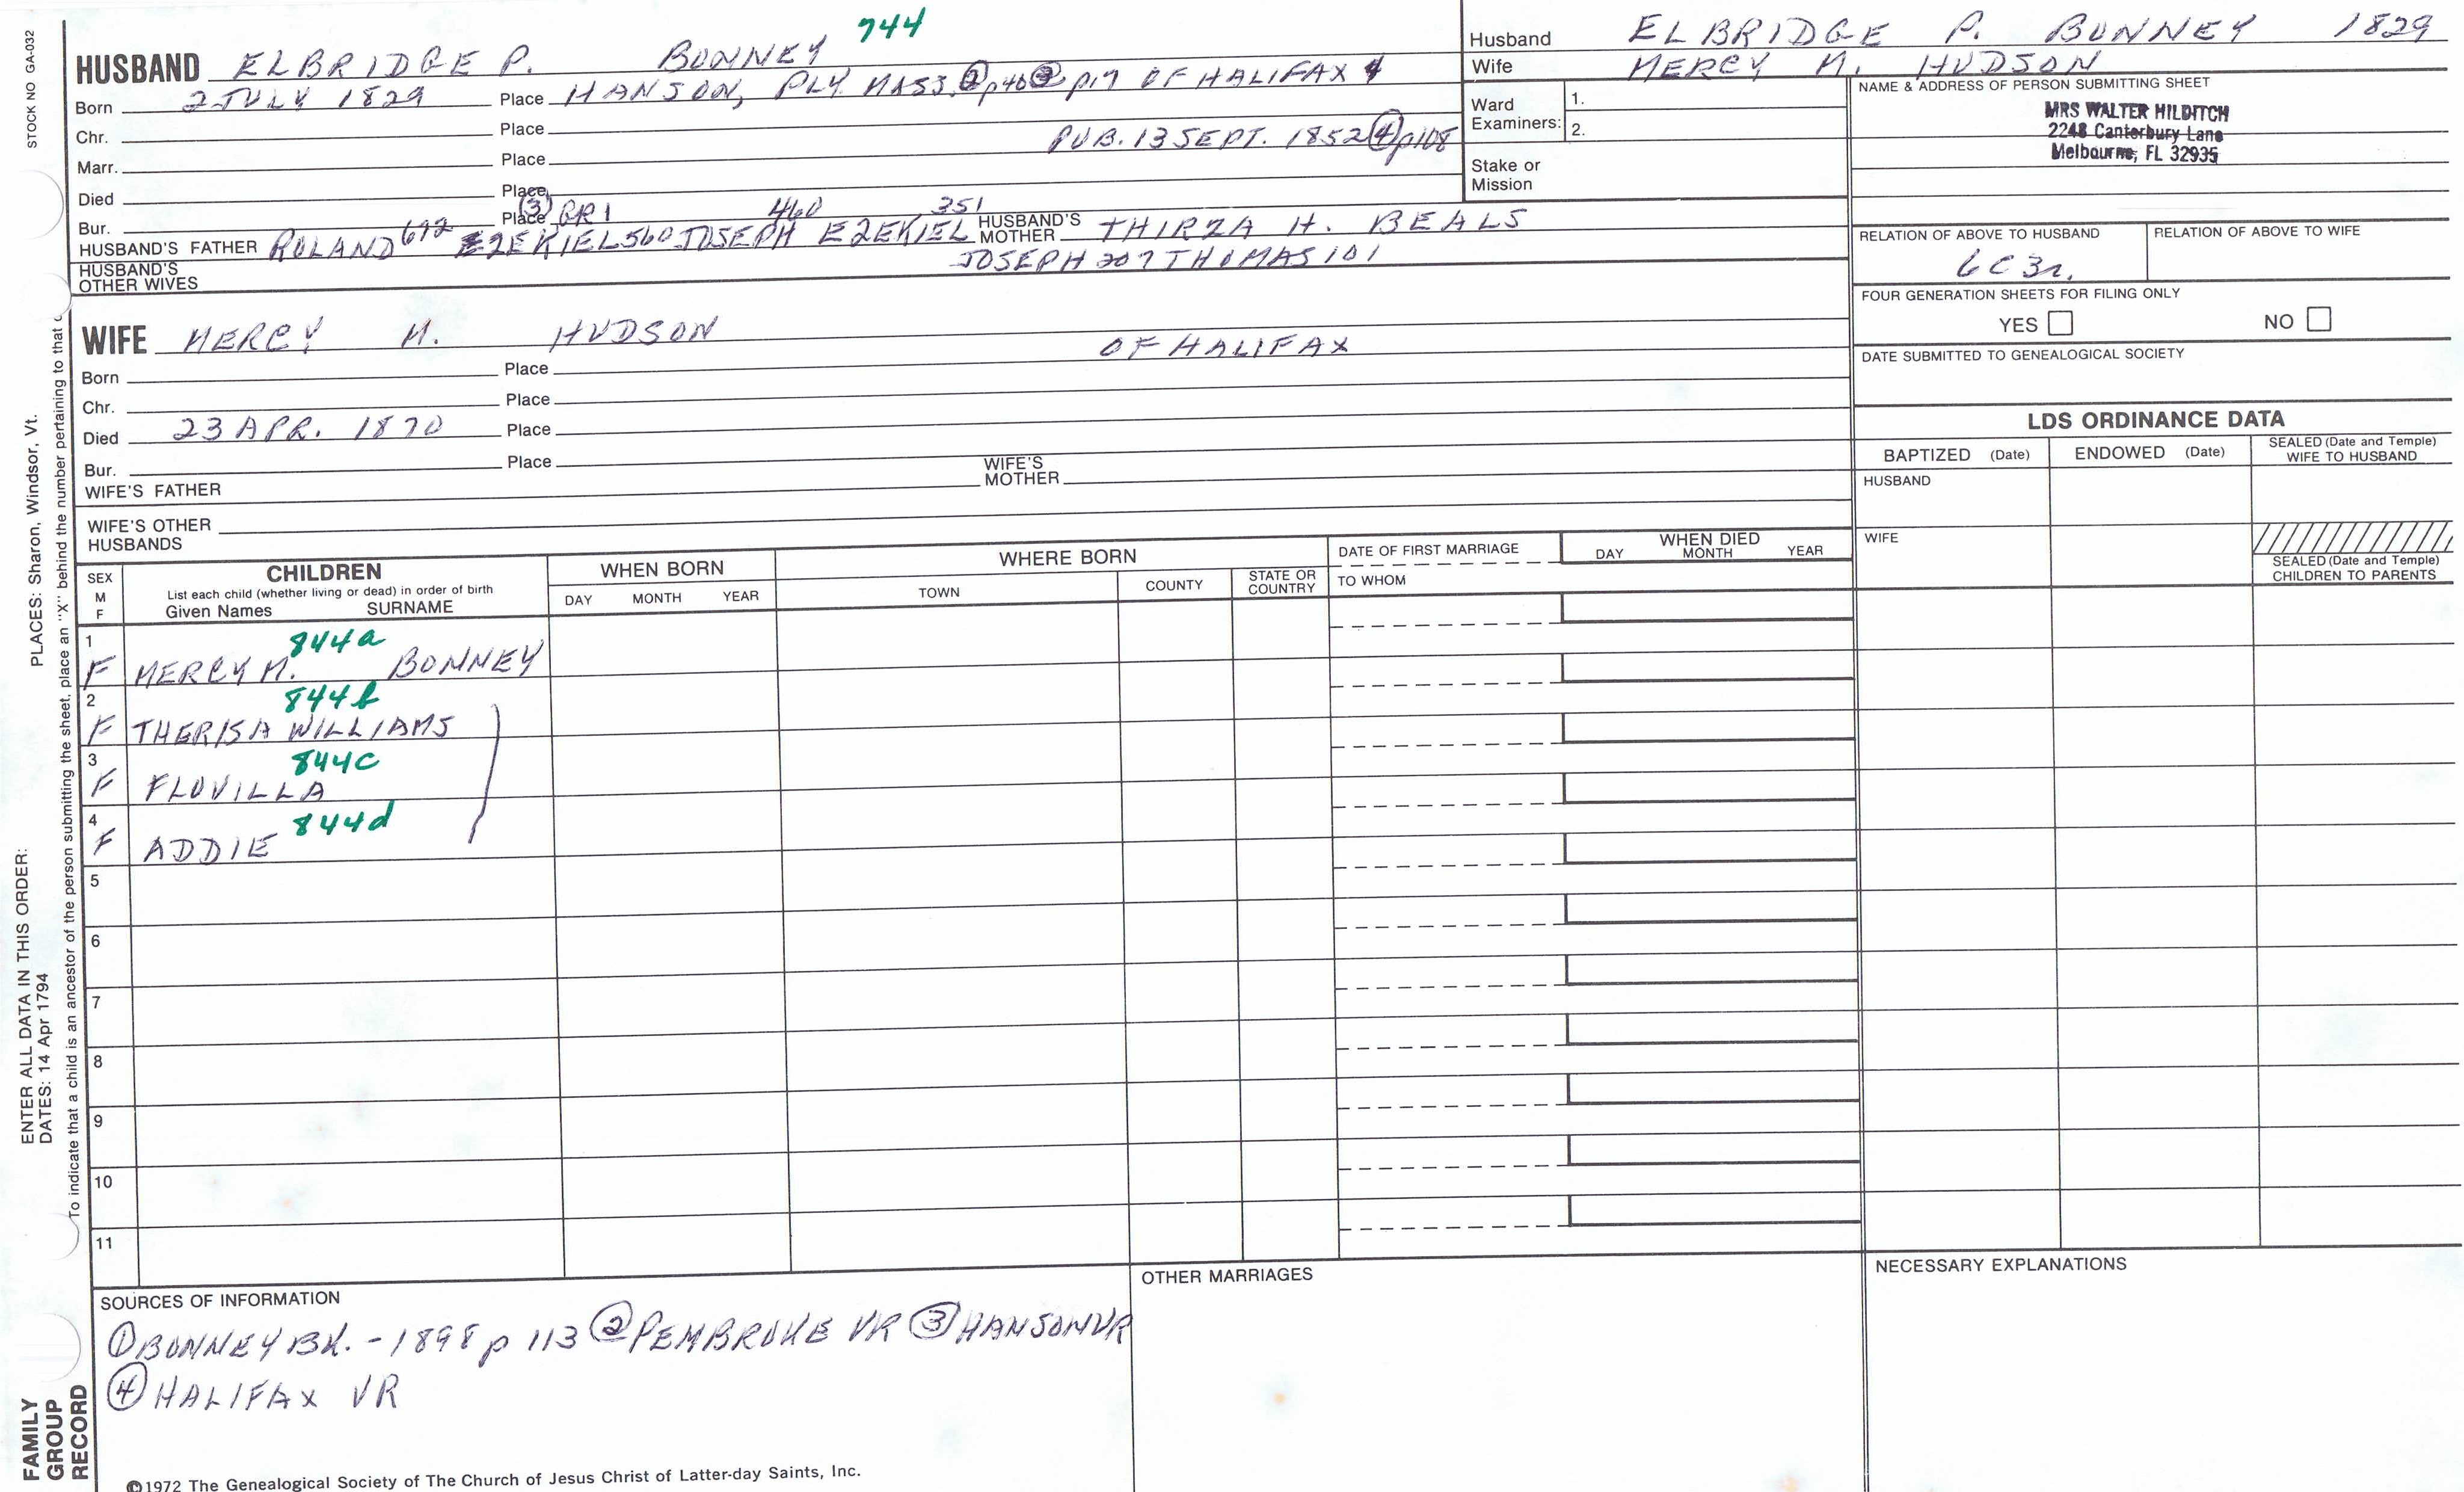 744
HUSBAND ELBRIDGE P. BONNEY
Born 2 JULY 1829 Place HANSON, PLY. MASS. ② p40 ③ p17 OF HALIFAX 4
Chr. Place
PUB. 13 SEPT. 1852 ④ p108
Marr. Place
Died Place
Bur. Place ③ GR1 460 351
HUSBAND'S FATHER ROLAND 672 EZEKIEL 560 JOSEPH EZEKIEL HUSBAND'S MOTHER THIRZA H. BEALS
HUSBAND'S OTHER WIVES JOSEPH 207 THOMAS 101
WIFE MERCY M. HUDSON
OF HALIFAX
Born Place
Chr. Place
Died 23 APR. 1870 Place
Bur. Place
WIFE'S FATHER WIFE'S MOTHER
WIFE'S OTHER HUSBANDS
Husband ELBRIDGE P. BONNEY 1829
Wife MERCY M. HUDSON
Ward Examiners: 1.
2.
Stake or Mission
NAME & ADDRESS OF PERSON SUBMITTING SHEET
MRS WALTER HILDITCH
2248 Canterbury Lane
Melbourne, FL 32935
RELATION OF ABOVE TO HUSBAND RELATION OF ABOVE TO WIFE
6C3r.
FOUR GENERATION SHEETS FOR FILING ONLY
YES NO
DATE SUBMITTED TO GENEALOGICAL SOCIETY
LDS ORDINANCE DATA
BAPTIZED (Date) ENDOWED (Date) SEALED (Date and Temple) WIFE TO HUSBAND
HUSBAND
WIFE
SEALED (Date and Temple) CHILDREN TO PARENTS
SEX M F
CHILDREN
List each child (whether living or dead) in order of birth
Given Names SURNAME
WHEN BORN
DAY MONTH YEAR
WHERE BORN
TOWN COUNTY STATE OR COUNTRY
DATE OF FIRST MARRIAGE
TO WHOM
WHEN DIED
DAY MONTH YEAR
1 844a
F MERCY M. BONNEY
2 844b
F THERISA WILLIAMS
3 844c
F FLOVILLA
4 844d
F ADDIE
5
6
7
8
9
10
11
SOURCES OF INFORMATION
① BONNEY BK. - 1898 p 113 ② PEMBROKE VR ③ HANSON VR
④ HALIFAX VR
OTHER MARRIAGES
NECESSARY EXPLANATIONS
©1972 The Genealogical Society of The Church of Jesus Christ of Latter-day Saints, Inc.
STOCK NO GA-032
PLACES: Sharon, Windsor, Vt.
ENTER ALL DATA IN THIS ORDER:
DATES: 14 Apr 1794
To indicate that a child is an ancestor of the person submitting the sheet, place an "X" behind the number pertaining to that c
FAMILY
GROUP
RECORD